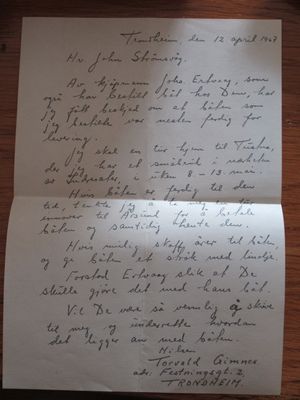 Trondheim, den 12 april 1967
Hr. John Strömsvåg.
Av kjöpmann Johs. Ertvaag, som
også har bestilt båt hos Dem, har
jeg fått beskjed om at båten som
jeg bestilte var nesten ferdig for
levering.
Jeg skal en tur hjem til Tustna,
der jeg har et småbruk i nærheten
av, i uken 8 - 13 mai.
Hvis båten er ferdig til den
tid, tenkte jeg å ta meg en tur
innover til Årsund for å betale
båten og samtidig hente den.
Hvis mulig skaff årer til båten,
og gi båten et strök med linolje.
Forstod Ertvaag slik at De
skulle gjöre det med hans båt.
Vil De være så vennlig å skrive
til meg og underrette hvordan
det ligger an med båten.
Hilsen
Torvald Gimnes
adr. Festningsgt. 2
TRONDHEIM.